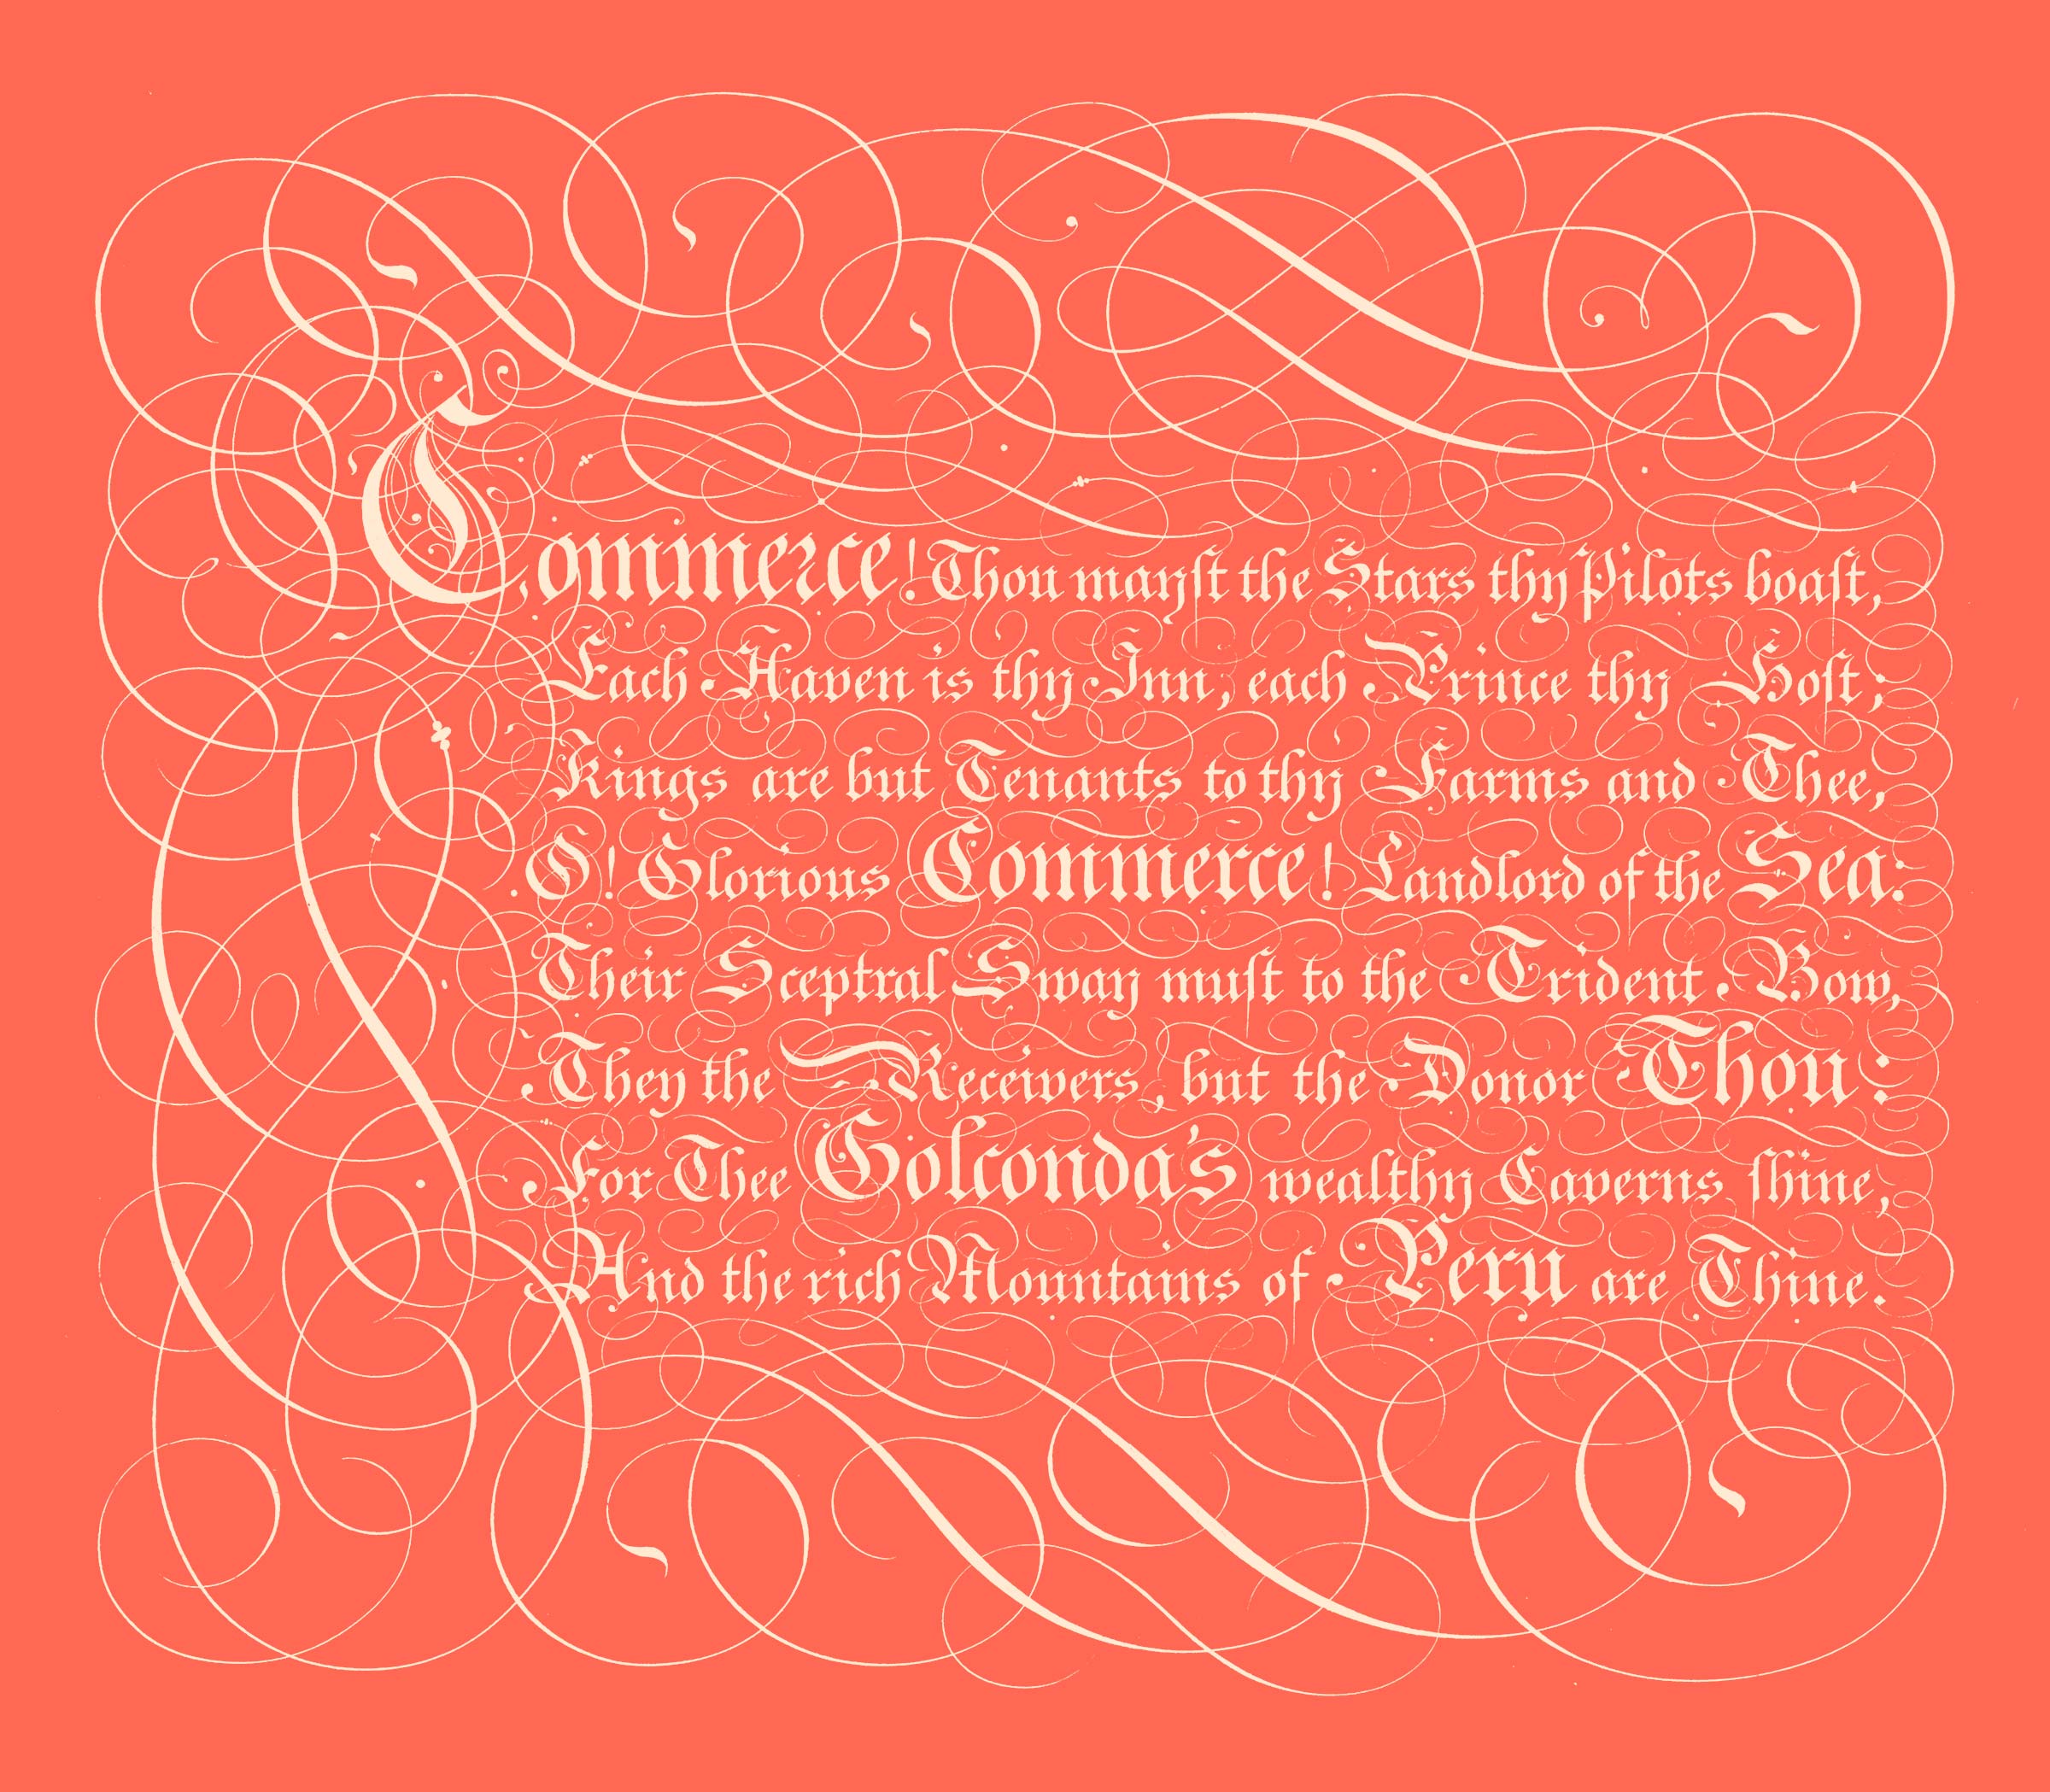 Commerce! Thou mayſt the Stars thy Pilots boaſt,
Each Haven is thy Inn, each Prince thy Hoſt;
Kings are but Tenants to thy Farms and Thee,
O! Glorious Commerce! Landlord of the Sea:
Their Sceptral Sway muſt to the Trident Bow,
They the Receivers, but the Donor Thou:
For Thee Golconda's wealthy Caverns ſhine,
And the rich Mountains of Peru are Thine.